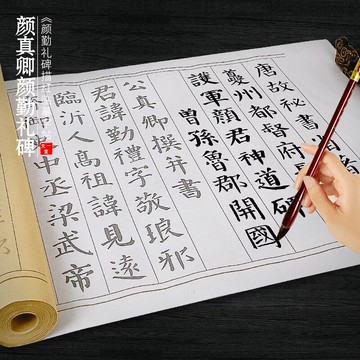 唐故祕書
夔州都督府
護軍顏君神道碑
曾孫魯郡開國
公真卿撰并書
君諱勤禮字敬琅邪
臨沂人高祖諱見遠
中丞梁武帝
颜真卿颜勤礼碑
《颜勤礼碑描